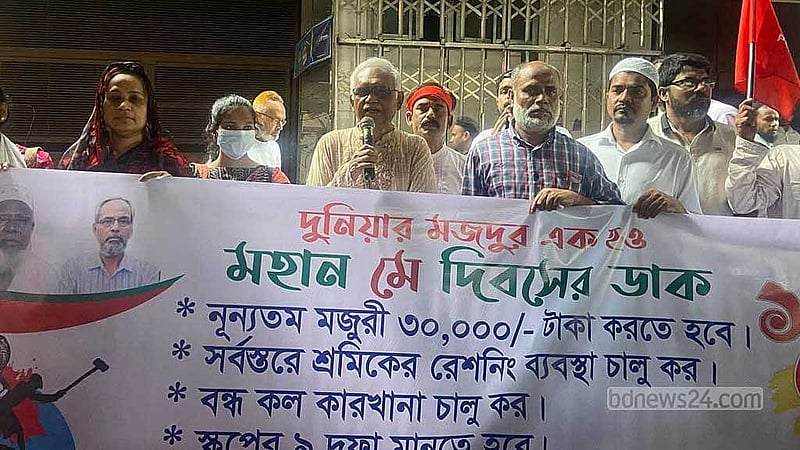 দুনিয়ার মজদুর এক হও
মহান মে দিবসের ডাক
* নূন্যতম মজুরী ৩০,০০০/- টাকা করতে হবে।
* সর্বস্তরে শ্রমিকের রেশনিং ব্যবস্থা চালু কর।
* বন্ধ কল কারখানা চালু কর।
* স্কপের ৯ দফা মানতে হবে।
bdnews24.com